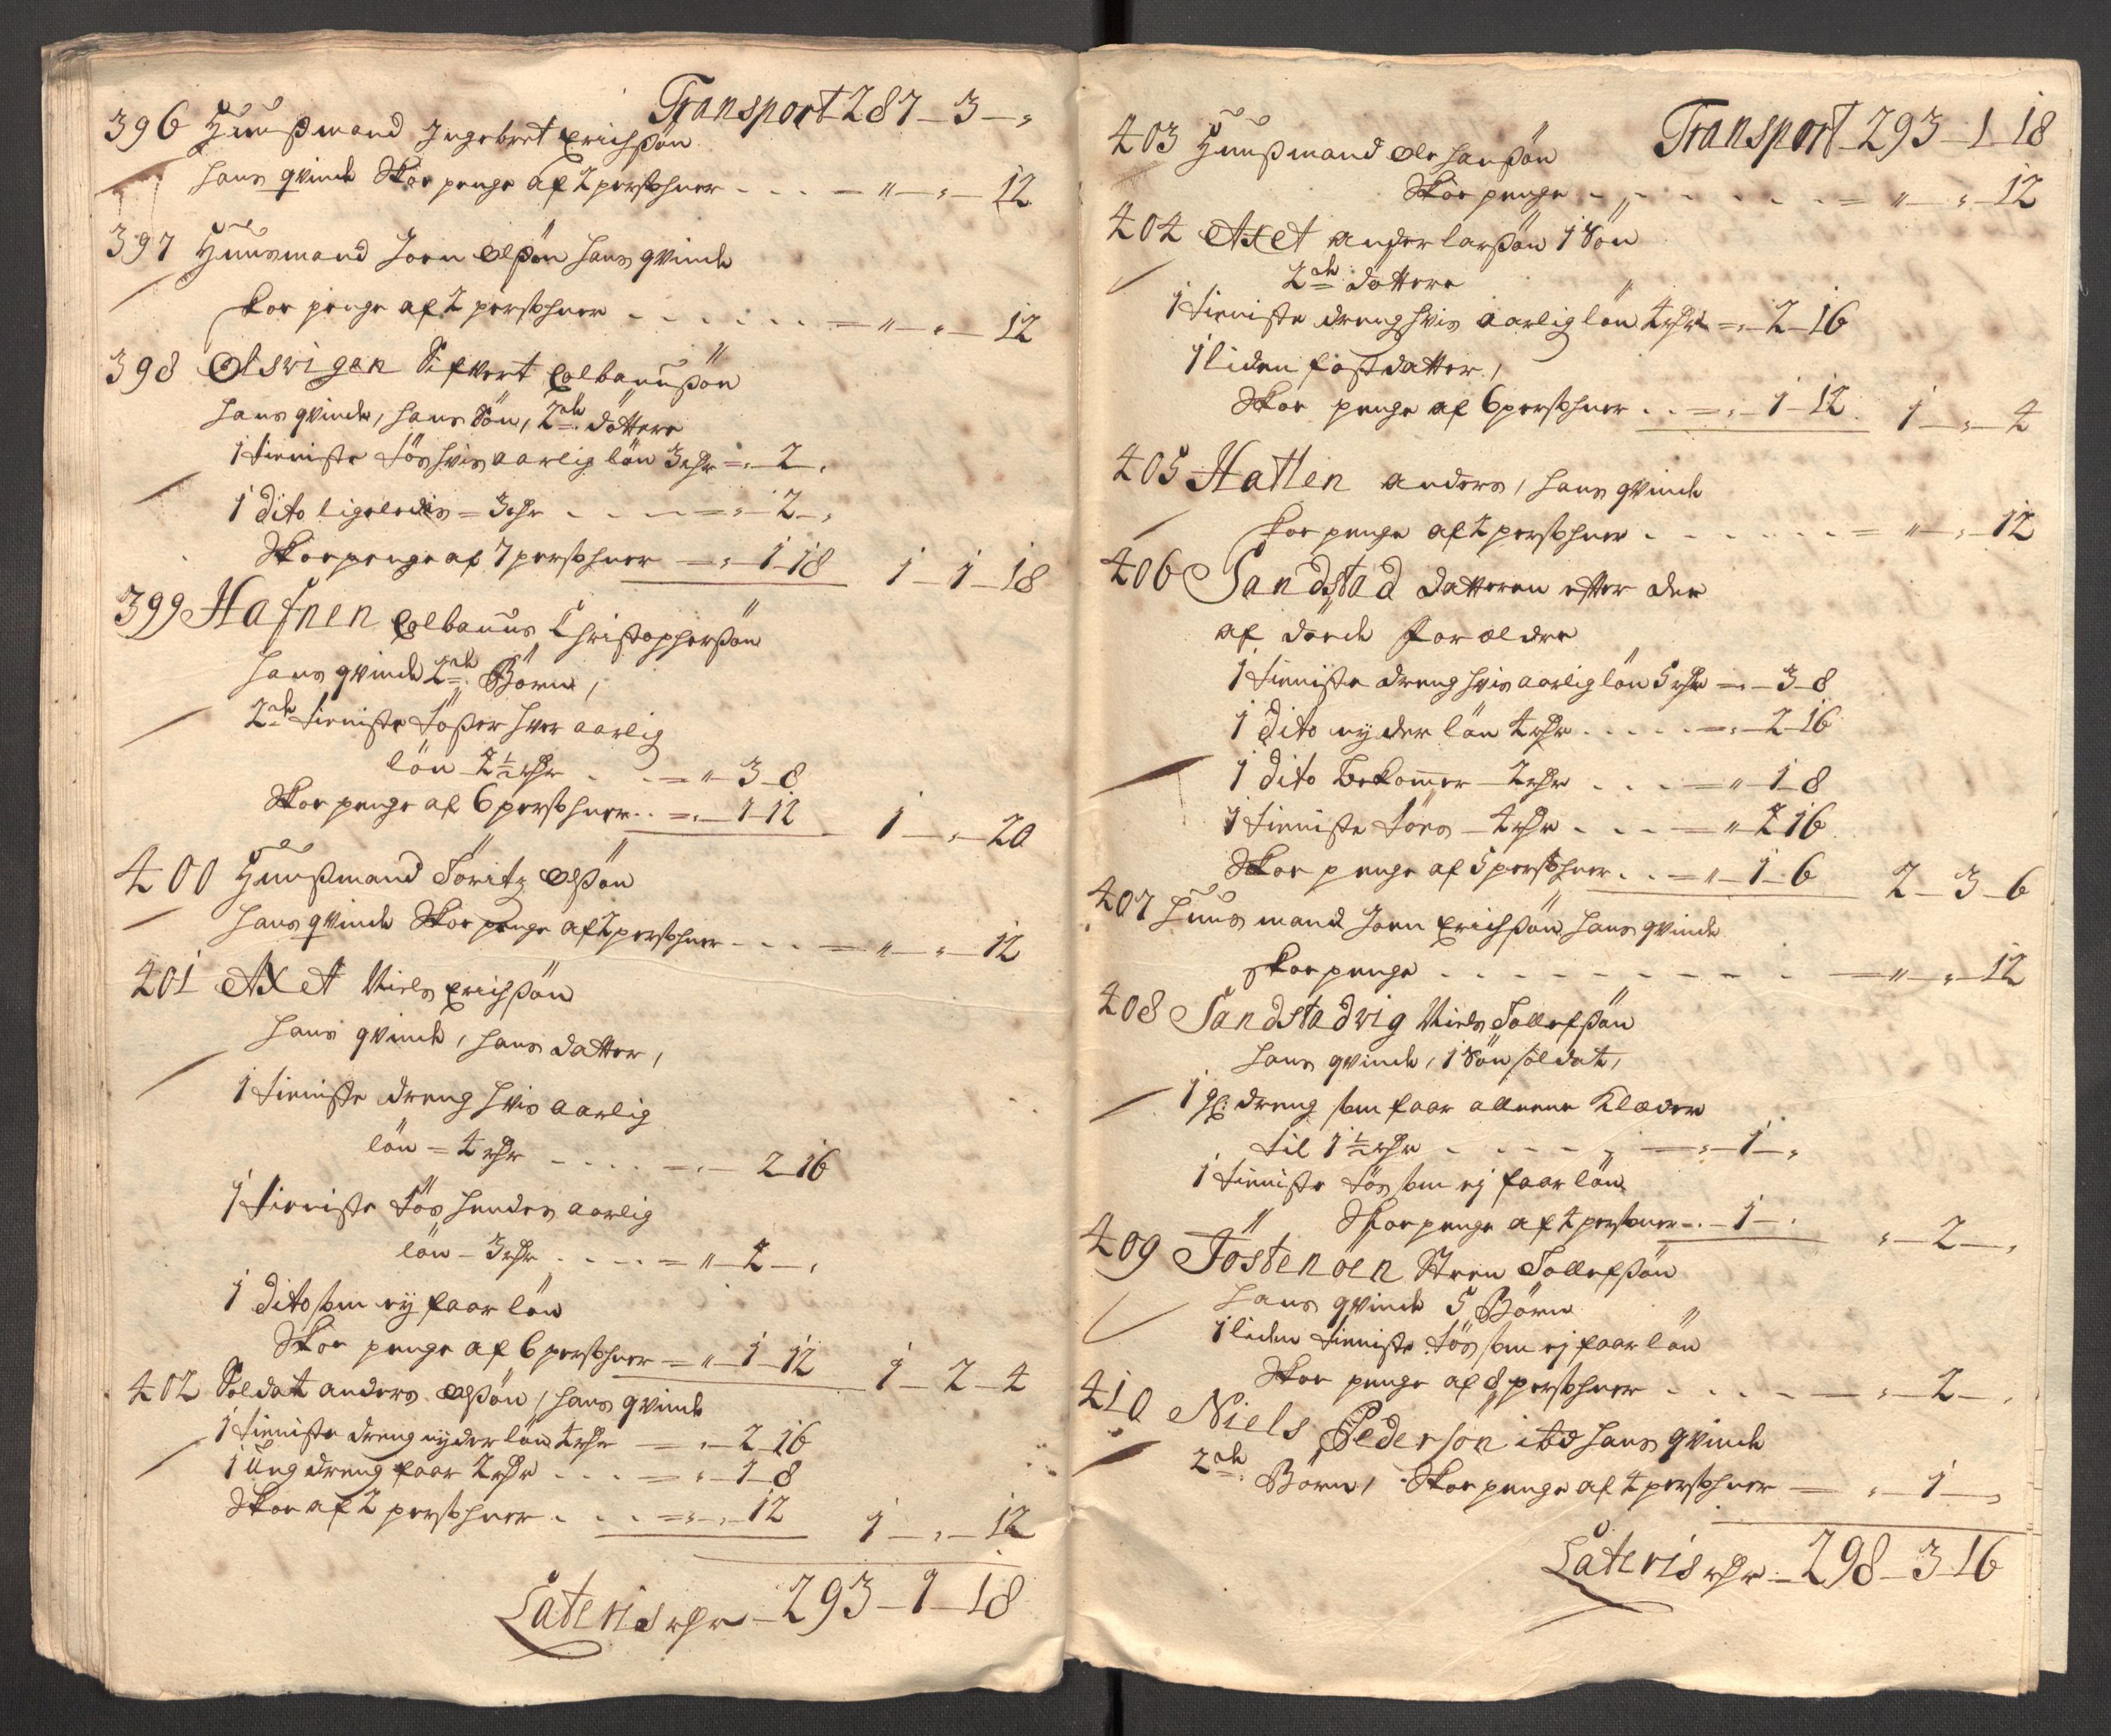 Transport 287 – 3 – „
396 Huußmand Ingebret Erichßön
hans qvinde Skoe penge af 2 persohner - - - – „ – „ – 12
397 Huusmand Joen Olßön hans qvinde
skoe penge af 2 persohner - - - - - - = „ – „ – 12
398 Olsvigen Sifvert Colbanußön
hans qvinde, hans Sön, 2de döttere
1 tieniste tös hvis aarlig lön 3 rdr = „ – 2 – „
1 dito ligeledis = 3 rdr - - - = „ – 2 – „
Skoe penge af 7 persohner – „ – 1 – 18 1 – 1 – 18
399 Hafnen Colbanus Christophersßön
hans qvinde 2de Börn,
2de tieniste tößer hver aarlig
lön 2½ rdr - - = „ 3 – 8
Skoe penge af 6 persohner - - = „ – 1 – 12 1 – „ – 20
400 Huußmand Söritz Olßön
hans qvinde Skoe penge af 2 persohner - - - = „ – „ – 12
401 AxEt Niels Erichßön
hans qvinde, hans datter,
1 tieniste dreng hvis aarlig
lön = 4 rdr - - - - = „ – 2 – 16
1 tieniste tös hendes aarlig
lön – 3 rdr - - - - = „ – 2 – „
1 dito som ey faar lön
Skoe penge af 6 persohner = „ – 1 – 12 1 – 2 – 4
402 Soldat anders Olßön, hans qvinde
1 tieniste dreng nyder lön 4 rdr – „ – 2 – 16
1 Ung dreng faar 2 rdr - - - = „ – 1 – 8
Skoe af 2 persohner - - - = „ – „ – 12 1 – „ – 12
Lateris rdr – 293 – 1 – 18
Transport – 293 – 1 – 18
403 Huußmand Ole hanßön
Skoe penge - - - - - - - = „ – „ – 12
404 AxEt ander larßön 1 Sön
2de döttere
1 tieniste dreng hvis aarlig lön 4 rdr = „ – 2 – 16
1 liden fostdatter,
Skoe penge af 6 persohner - - = „ – 1 – 12 1 – „ – 4
405 Hatlen anders, hans qvinde
skoe penge af 2 persohner - - - - - - = „ – „ – 12
406 Sandstad datteren efter den
af döede forældre
1 tieniste dreng hvis aarlig lön 5 rdr = „ – 3 – 8
1 dito nyder lön 4 rdr - - - - = „ – 2 – 16
1 dito bekommer – 2 rdr - - - = „ – 1 – 8
1 tieniste töes – 4 rdr - - - = „ 2 16
Skoe penge af 5 persohner - - = „ – 1 – 6 2 – 3 – 6
407 Huusmand Joen Erichßön hans qvinde
skoe penge - - - - - - - - - – „ – „ – 12
408 Sandstadvig Niels Tollefßön
hans qvinde, 1 Sön soldat,
1 gl: dreng som faar alleene Klæder
til 1½ rdr - - - - - – „ – 1 – „
1 tieniste tös som ej faar lön
Skoe penge af 4 persohner – „ – 1 – „ „ – 2 – „
409 Töstenöen Steen Tollefßön
hans qvinde 5 Börn
1 liden tieniste tös som ej faar lön
Skoe penge af 8 persohner - - - - – „ – 2 – „
410 Niels Pedersön ibd hans qvinde
2de Börn, Skoe penge af 4 persohner – „ – 1 – „
Lateris rdr – 298 – 3 – 16